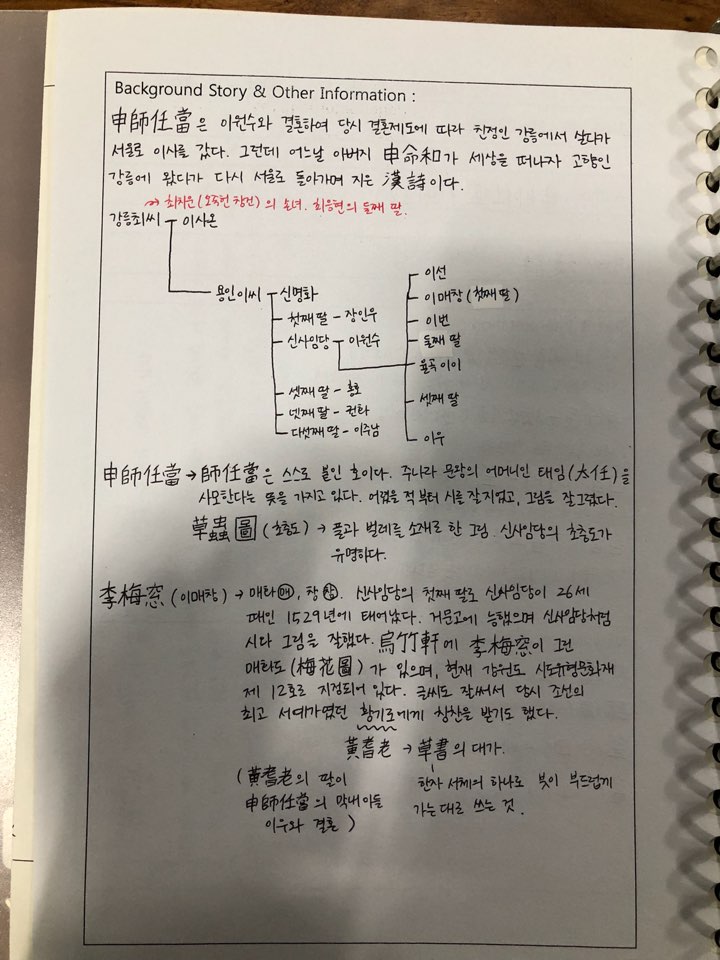 Background Story & Other Information :
申師任當은 이원수와 결혼하여 당시 결혼제도에 따라 친정인 강릉에서 살다가
서울로 이사를 갔다. 그런데 어느날 아버지 申命和가 세상을 떠나자 고향인
강릉에 왔다가 다시 서울로 돌아가며 지은 漢詩이다.
→ 최치운(오죽헌 창건)의 손녀. 최응현의 둘째 딸.
강릉최씨 이사온
용인이씨 신명화
첫째 딸 - 장인우
신사임당 이원수
셋째 딸 - 홍호
넷째 딸 - 권화
다섯째 딸 - 이주남
이선
이매창 (첫째 딸)
이번
둘째 딸
율곡 이이
셋째 딸
이우
申師任當 → 師任當은 스스로 붙인 호이다. 주나라 문왕의 어머니인 태임(太任)을
사모한다는 뜻을 가지고 있다. 어렸을 적부터 시를 잘 지었고, 그림을 잘 그렸다.
草蟲圖 (초충도) → 풀과 벌레를 소재로 한 그림. 신사임당의 초충도가
유명하다.
李梅窓 (이매창) → 매화 매, 창 창. 신사임당의 첫째 딸로 신사임당이 26세
때인 1529년에 태어났다. 거문고에 능했으며 신사임당처럼
시다 그림을 잘했다. 烏竹軒에 李梅窓이 그린
매화도 (梅花圖)가 있으며, 현재 강원도 시도유형문화재
제 12호로 지정되어 있다. 글씨도 잘써서 당시 조선의
최고 서예가였던 황기로에게 칭찬을 받기도 했다.
黃耆老 → 草書의 대가.
(黃耆老의 딸이
申師任當의 막내아들
이우와 결혼)
한자 서체의 하나로 붓이 부드럽게
가는 대로 쓰는 것.